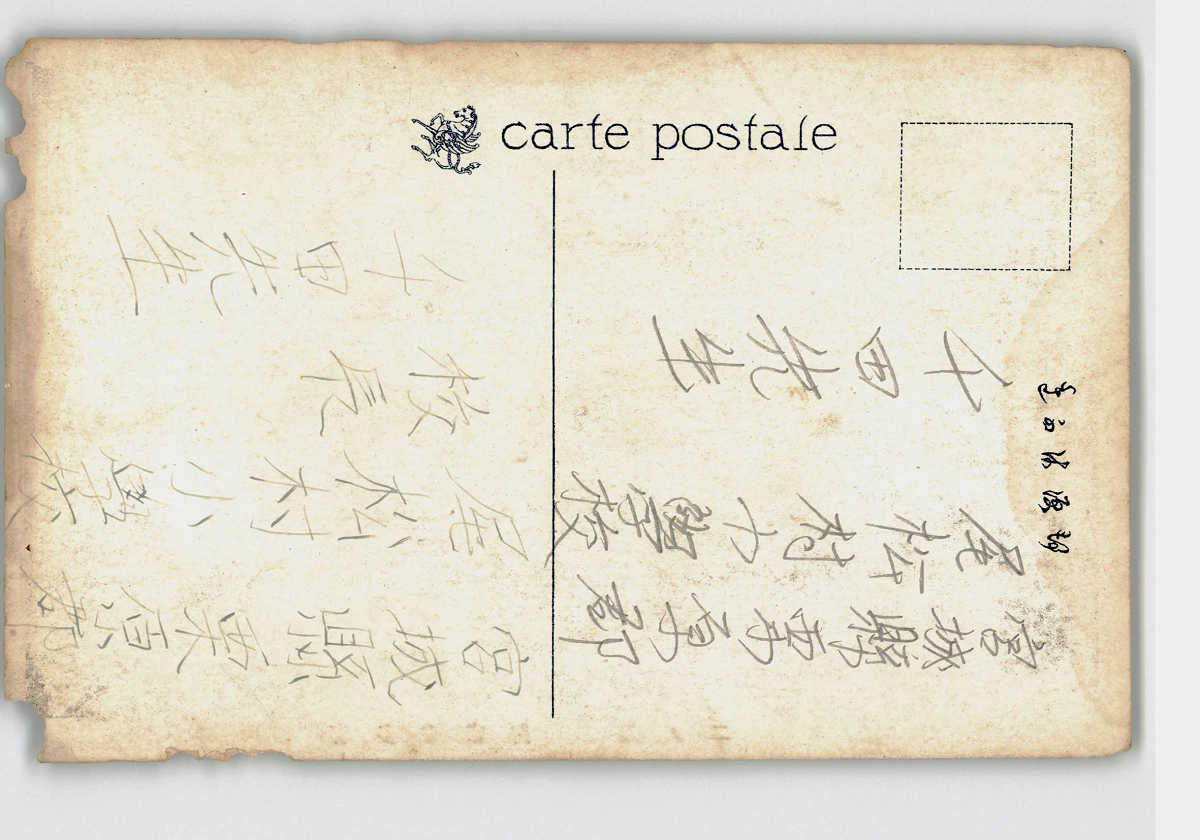 carte postale
宮城縣栗原郡
尾松村小學校
千田先生
宮城縣栗原郡
尾松村小學校
校長
千田先生